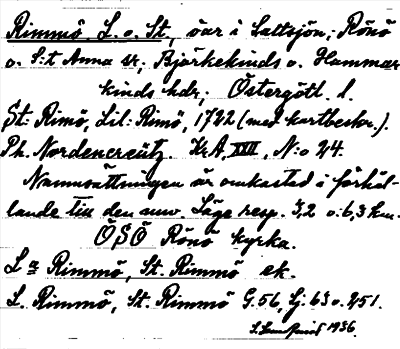 Rimmö, L. o. St., öar i Saltsjön; Rönö
o. S:t Anna sn; Björkekinds o. Hammar
kinds hdr; Östergötl. l.
St: Rimö, Lil: Rimö, 1722 (med kartbeskr.).
Ph. Nordencreütz. KrA, XXII, N:o 24.
Namnsättningen är omkastad i förhål-
lande till den nuv. Läge resp. 3,2 o. 6,3 km.
ÖSÖ Rönö kyrka.
La Rimmö, St. Rimmö ek.
L. Rimmö, St. Rimmö G. 56, Lj: 63 o. 251.
1936.